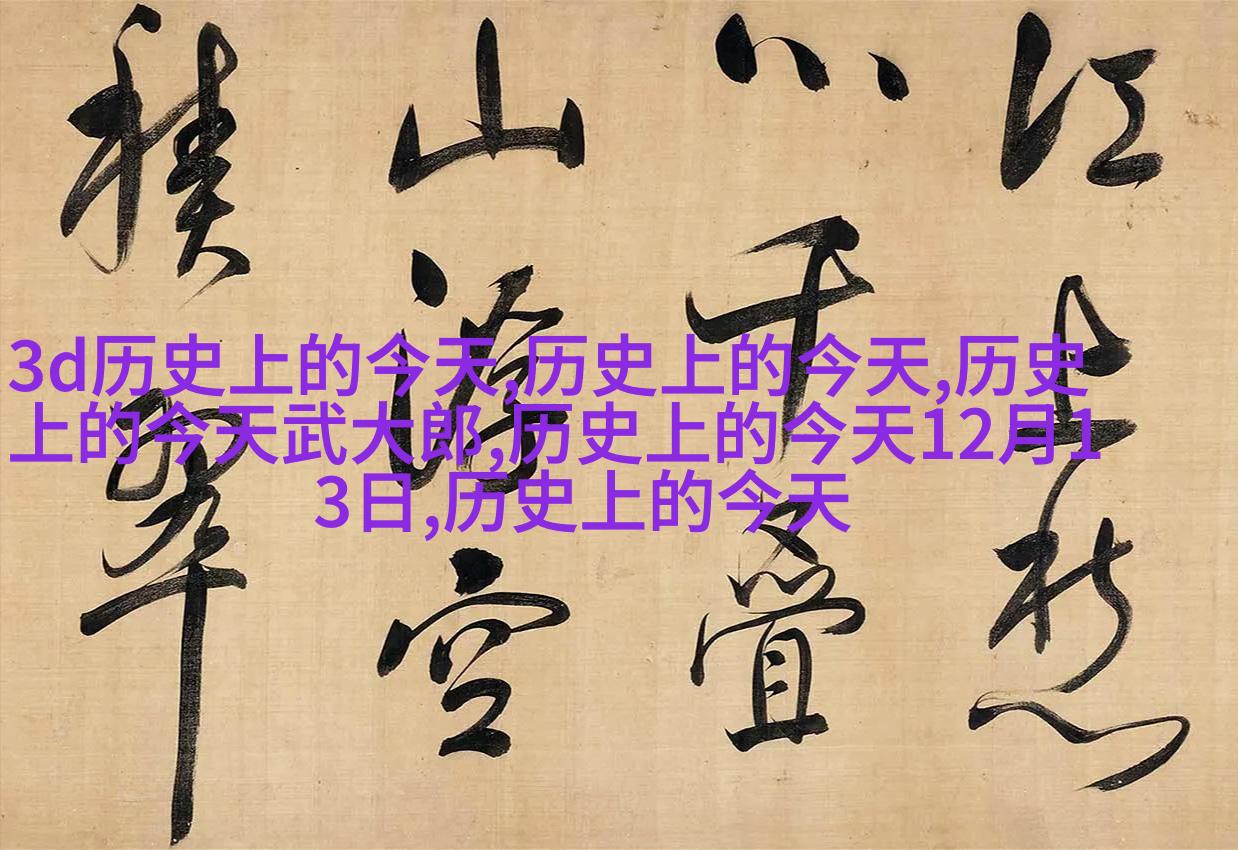 江上愁
心千疊
山浮空
積翠
3d历史上的今天,历史上的今天,历史
上的今天武大郎,历史上的今天12月1
3日,历史上的今天